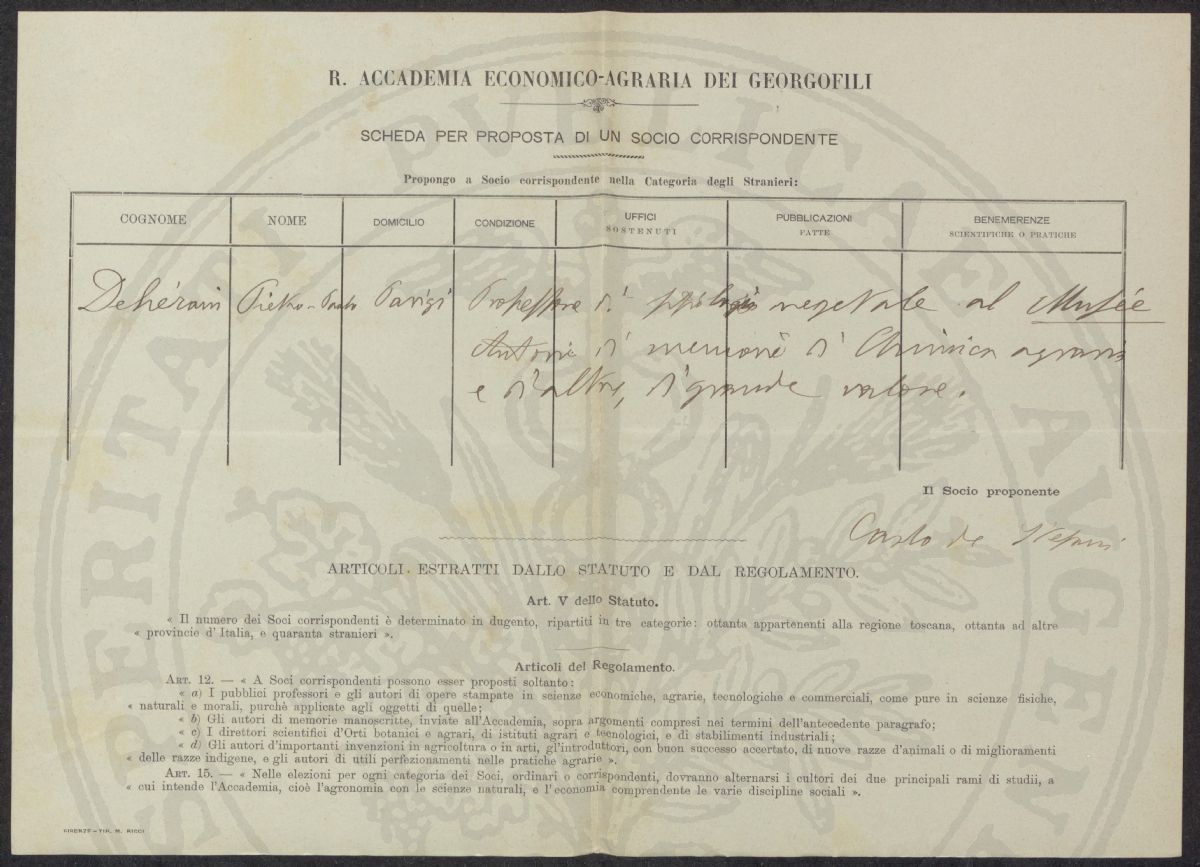 R. ACCADEMIA ECONOMICO-AGRARIA DEI GEORGOFILI
SCHEDA PER PROPOSTA DI UN SOCIO CORRISPONDENTE
Propongo a Socio corrispondente nella Categoria degli Stranieri:
COGNOME NOME DOMICILIO CONDIZIONE UFFICI SOSTENUTI PUBBLICAZIONI FATTE BENEMERENZE SCIENTIFICHE O PRATICHE
Dehérain Pietro-Paolo Parigi Professore di fisiologia vegetale al Musée
Autore di memorie di Chimica agraria
e di altre, di grande valore.
Il Socio proponente
Carlo de Stefani
ARTICOLI ESTRATTI DALLO STATUTO E DAL REGOLAMENTO.
Art. V dello Statuto.
« Il numero dei Soci corrispondenti è determinato in dugento, ripartiti in tre categorie: ottanta appartenenti alla regione toscana, ottanta ad altre
« provincie d'Italia, e quaranta stranieri ».
Articoli del Regolamento.
ART. 12. — « A Soci corrispondenti possono esser proposti soltanto:
« a) I pubblici professori e gli autori di opere stampate in scienze economiche, agrarie, tecnologiche e commerciali, come pure in scienze fisiche,
« naturali e morali, purchè applicate agli oggetti di quelle;
« b) Gli autori di memorie manoscritte, inviate all'Accademia, sopra argomenti compresi nei termini dell'antecedente paragrafo;
« c) I direttori scientifici d'Orti botanici e agrari, di istituti agrari e tecnologici, e di stabilimenti industriali;
« d) Gli autori d'importanti invenzioni in agricoltura o in arti, gl'introduttori, con buon successo accertato, di nuove razze d'animali o di miglioramenti
« delle razze indigene, e gli autori di utili perfezionamenti nelle pratiche agrarie ».
ART. 15. — « Nelle elezioni per ogni categoria dei Soci, ordinari o corrispondenti, dovranno alternarsi i cultori dei due principali rami di studii, a
« cui intende l'Accademia, cioè l'agronomia con le scienze naturali, e l'economia comprendente le varie discipline sociali ».
FIRENZE – TIP. M. RICCI
PROSPERITATI PUBLICAE AUGENDAE